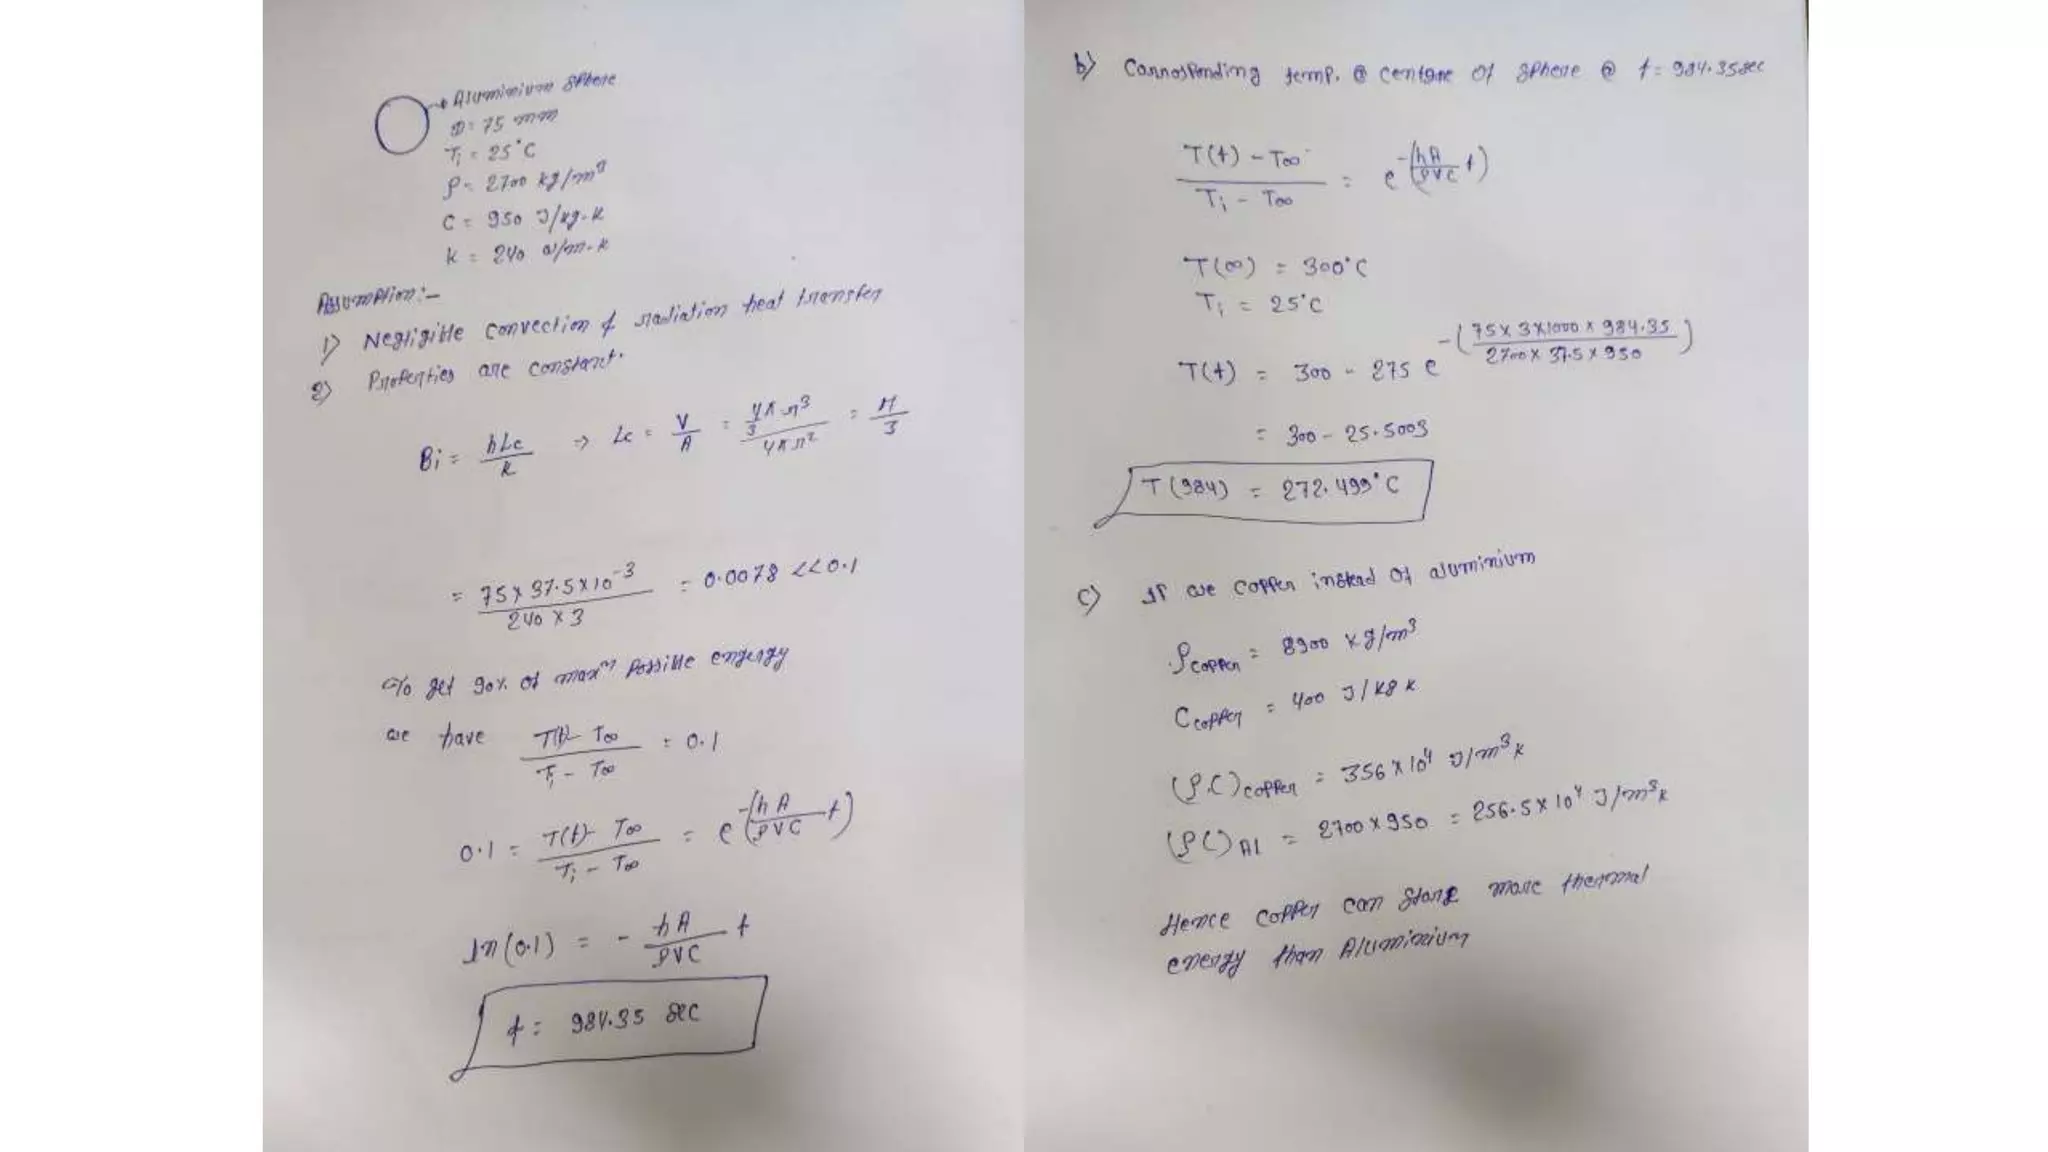 Aluminium sphere
D = 75 mm
Ti = 25°C
ρ = 2700 kg/m³
C = 950 J/kg-K
k = 240 w/m-K
Assumption:-
1) Negligible convection & radiation heat transfer
2) Properties are constant.
Bi = hLc/k ⇒ Lc = V/A = (4/3 πr³)/(4πr²) = r/3
= (75 × 37.5 × 10⁻³)/(240 × 3) = 0.0078 << 0.1
To get 90% of maxᵐ possible energy
we have (T(t) - T∞)/(Ti - T∞) = 0.1
0.1 = (T(t) - T∞)/(Ti - T∞) = e^-(hA/ρVC t)
ln(0.1) = - hA/ρVC t
t = 984.35 sec
b) Corresponding temp. @ centre of sphere @ t = 984.35sec
(T(t) - T∞)/(Ti - T∞) = e^-(hA/ρVC t)
T(∞) = 300°C
Ti = 25°C
T(t) = 300 - 275 e^-((75 × 3 × 1000 × 984.35)/(2700 × 37.5 × 950))
= 300 - 25.5003
T(984) = 272.499°C
c) If we copper instead of aluminium
ρcopper = 8900 kg/m³
Ccopper = 400 J/kg K
(ρ.C)copper = 356 × 10⁴ J/m³K
(ρC)Al = 2700 × 950 = 256.5 × 10⁴ J/m³K
Hence copper can store more thermal
energy than Aluminium